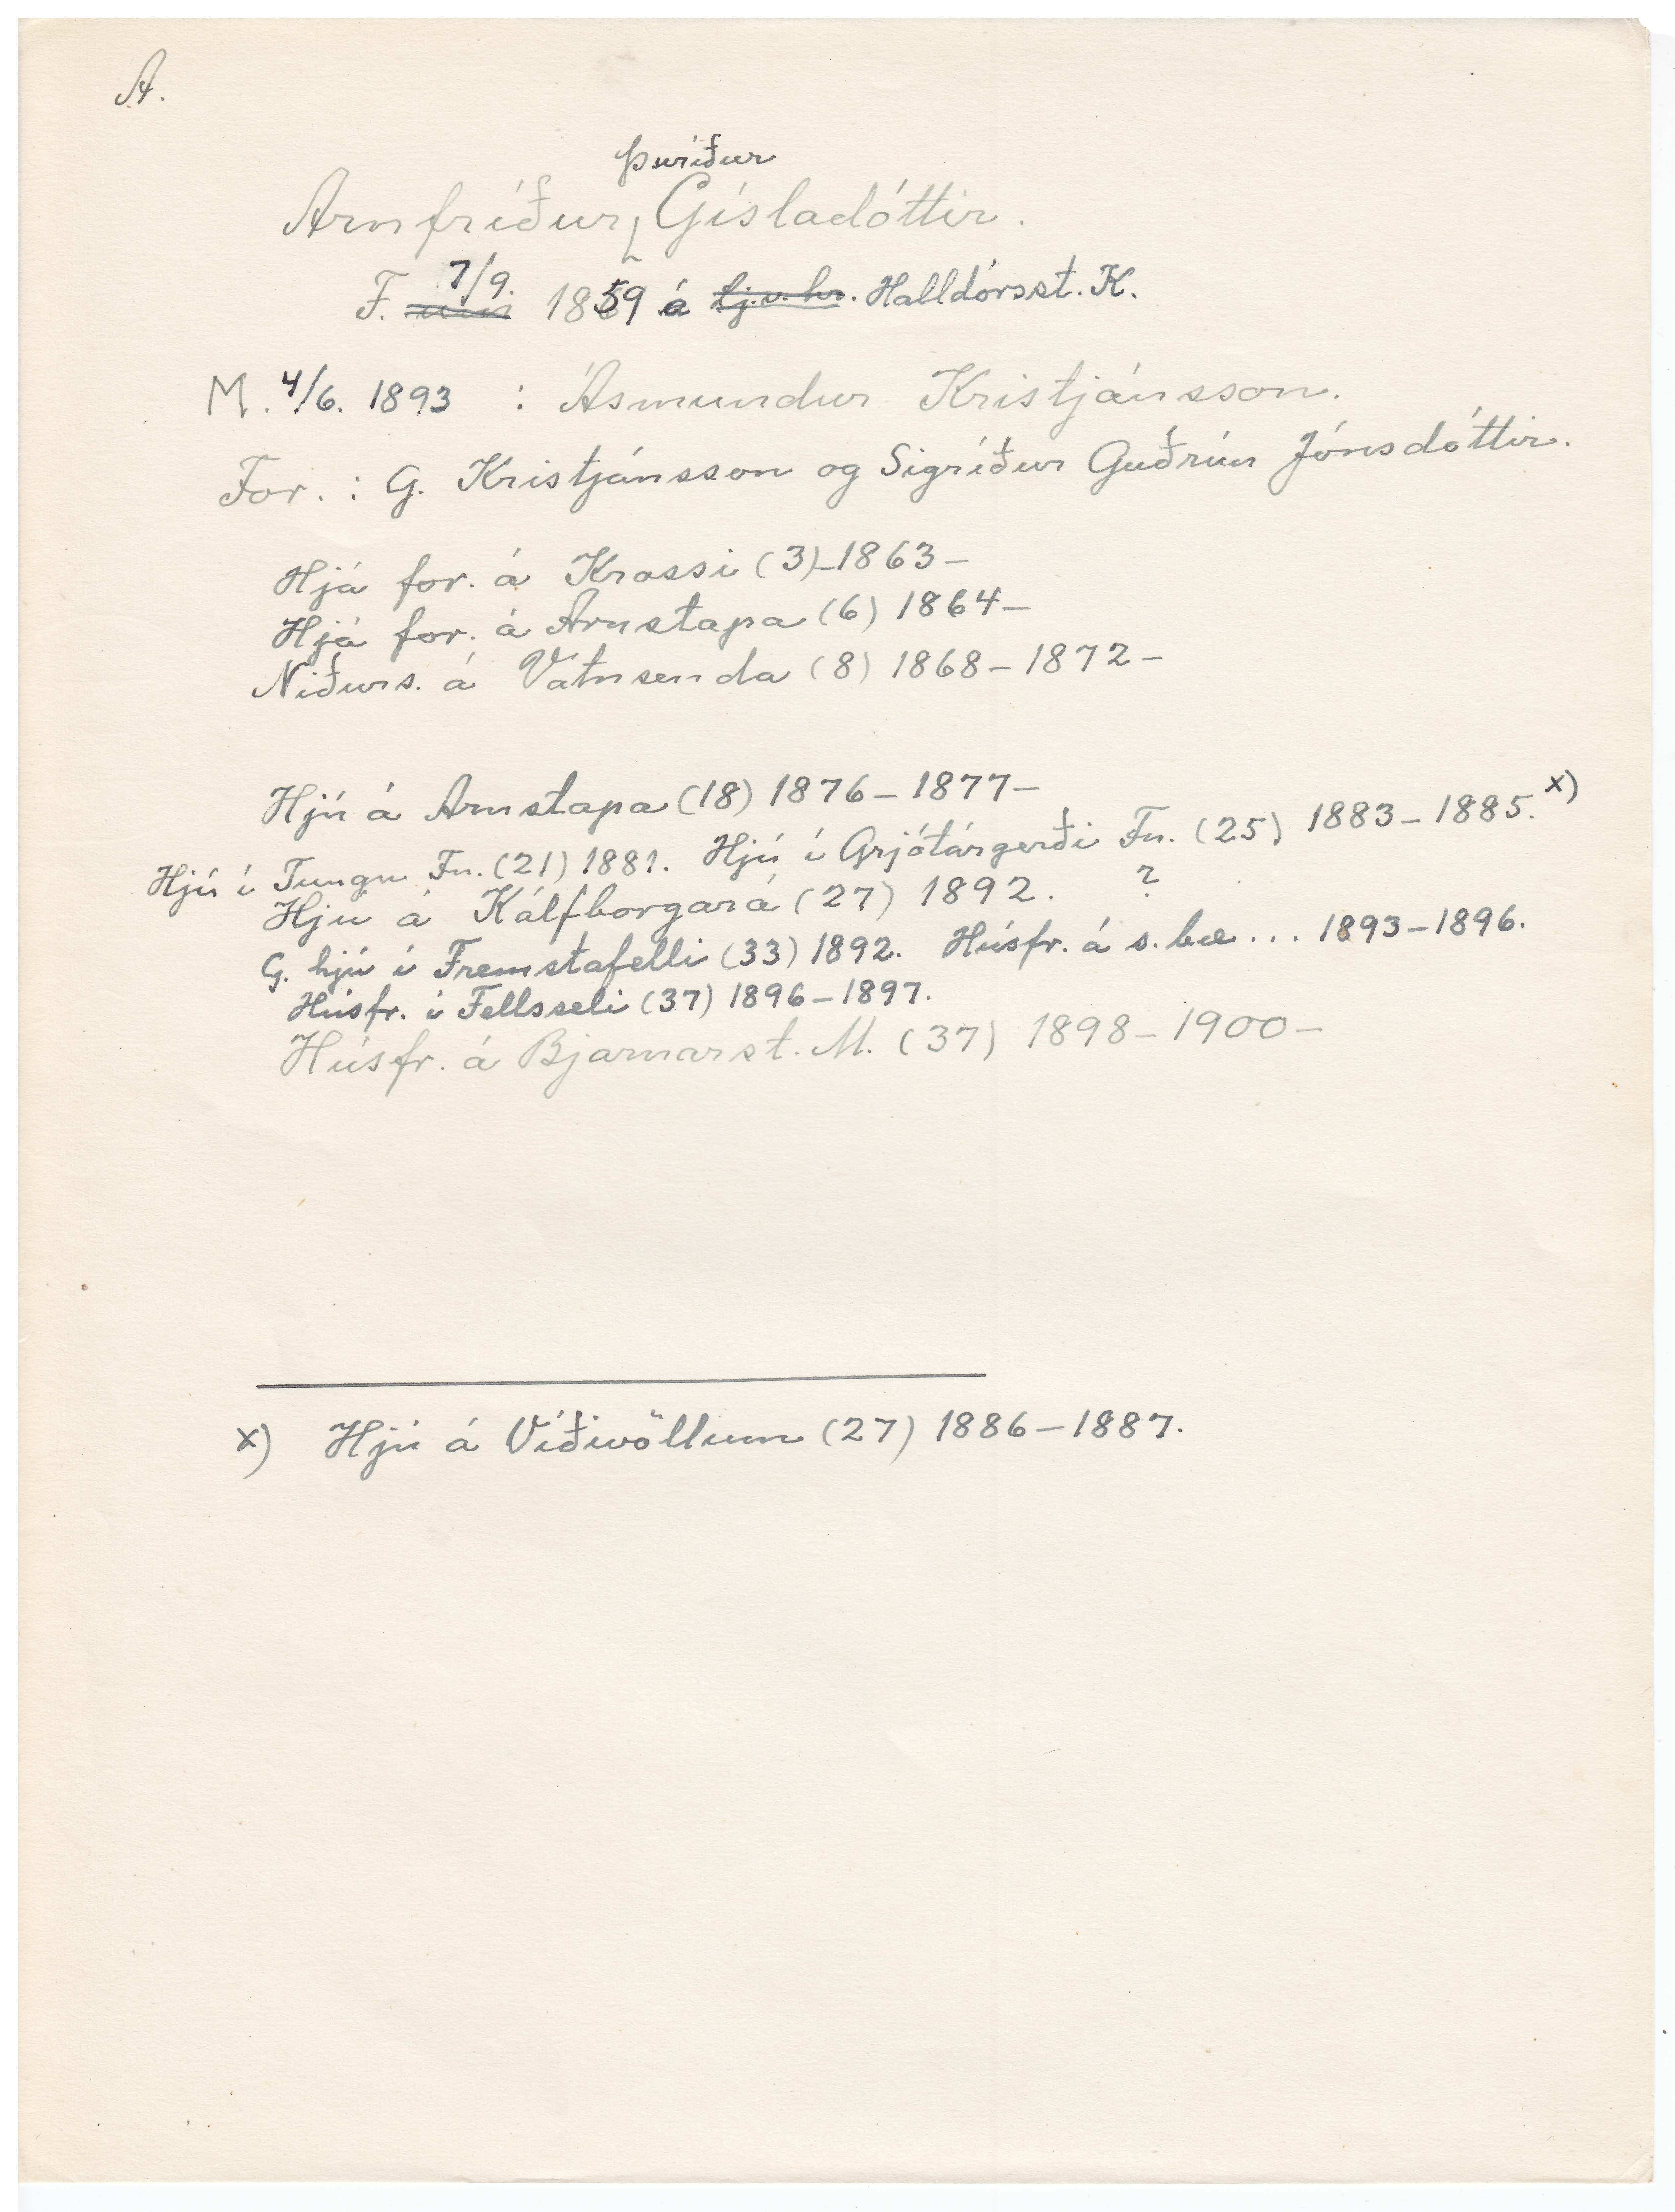 A.
Þuríður
Arnfríður Gísladóttir.
F. 7/9. 1859 á lj.v.hr. Halldórsst. K.
M. 4/6. 1893 : Ásmundur Kristjánsson.
For. : G. Kristjánsson og Sigríður Guðrún Jónsdóttir.
Hjá for. á Krossi (3)-1863-
Hjá for. á Arnstapa (6) 1864-
Niðurs. á Vatnsenda (8) 1868-1872-
Hjú á Arnstapa (18) 1876-1877-
Hjú í Tungu Fn. (21) 1881. Hjú í Grjótárgerði Fn. (25) 1883-1885. x)
Hjú á Kálfborgará (27) 1892. ?
G. hjú í Fremstafelli (33) 1892. Húsfr. á s. bæ... 1893-1896.
Húsfr. í Fellsseli (37) 1896-1897.
Húsfr. á Bjarnarst. M. (37) 1898-1900-
x) Hjú á Víðivöllum (27) 1886-1887.